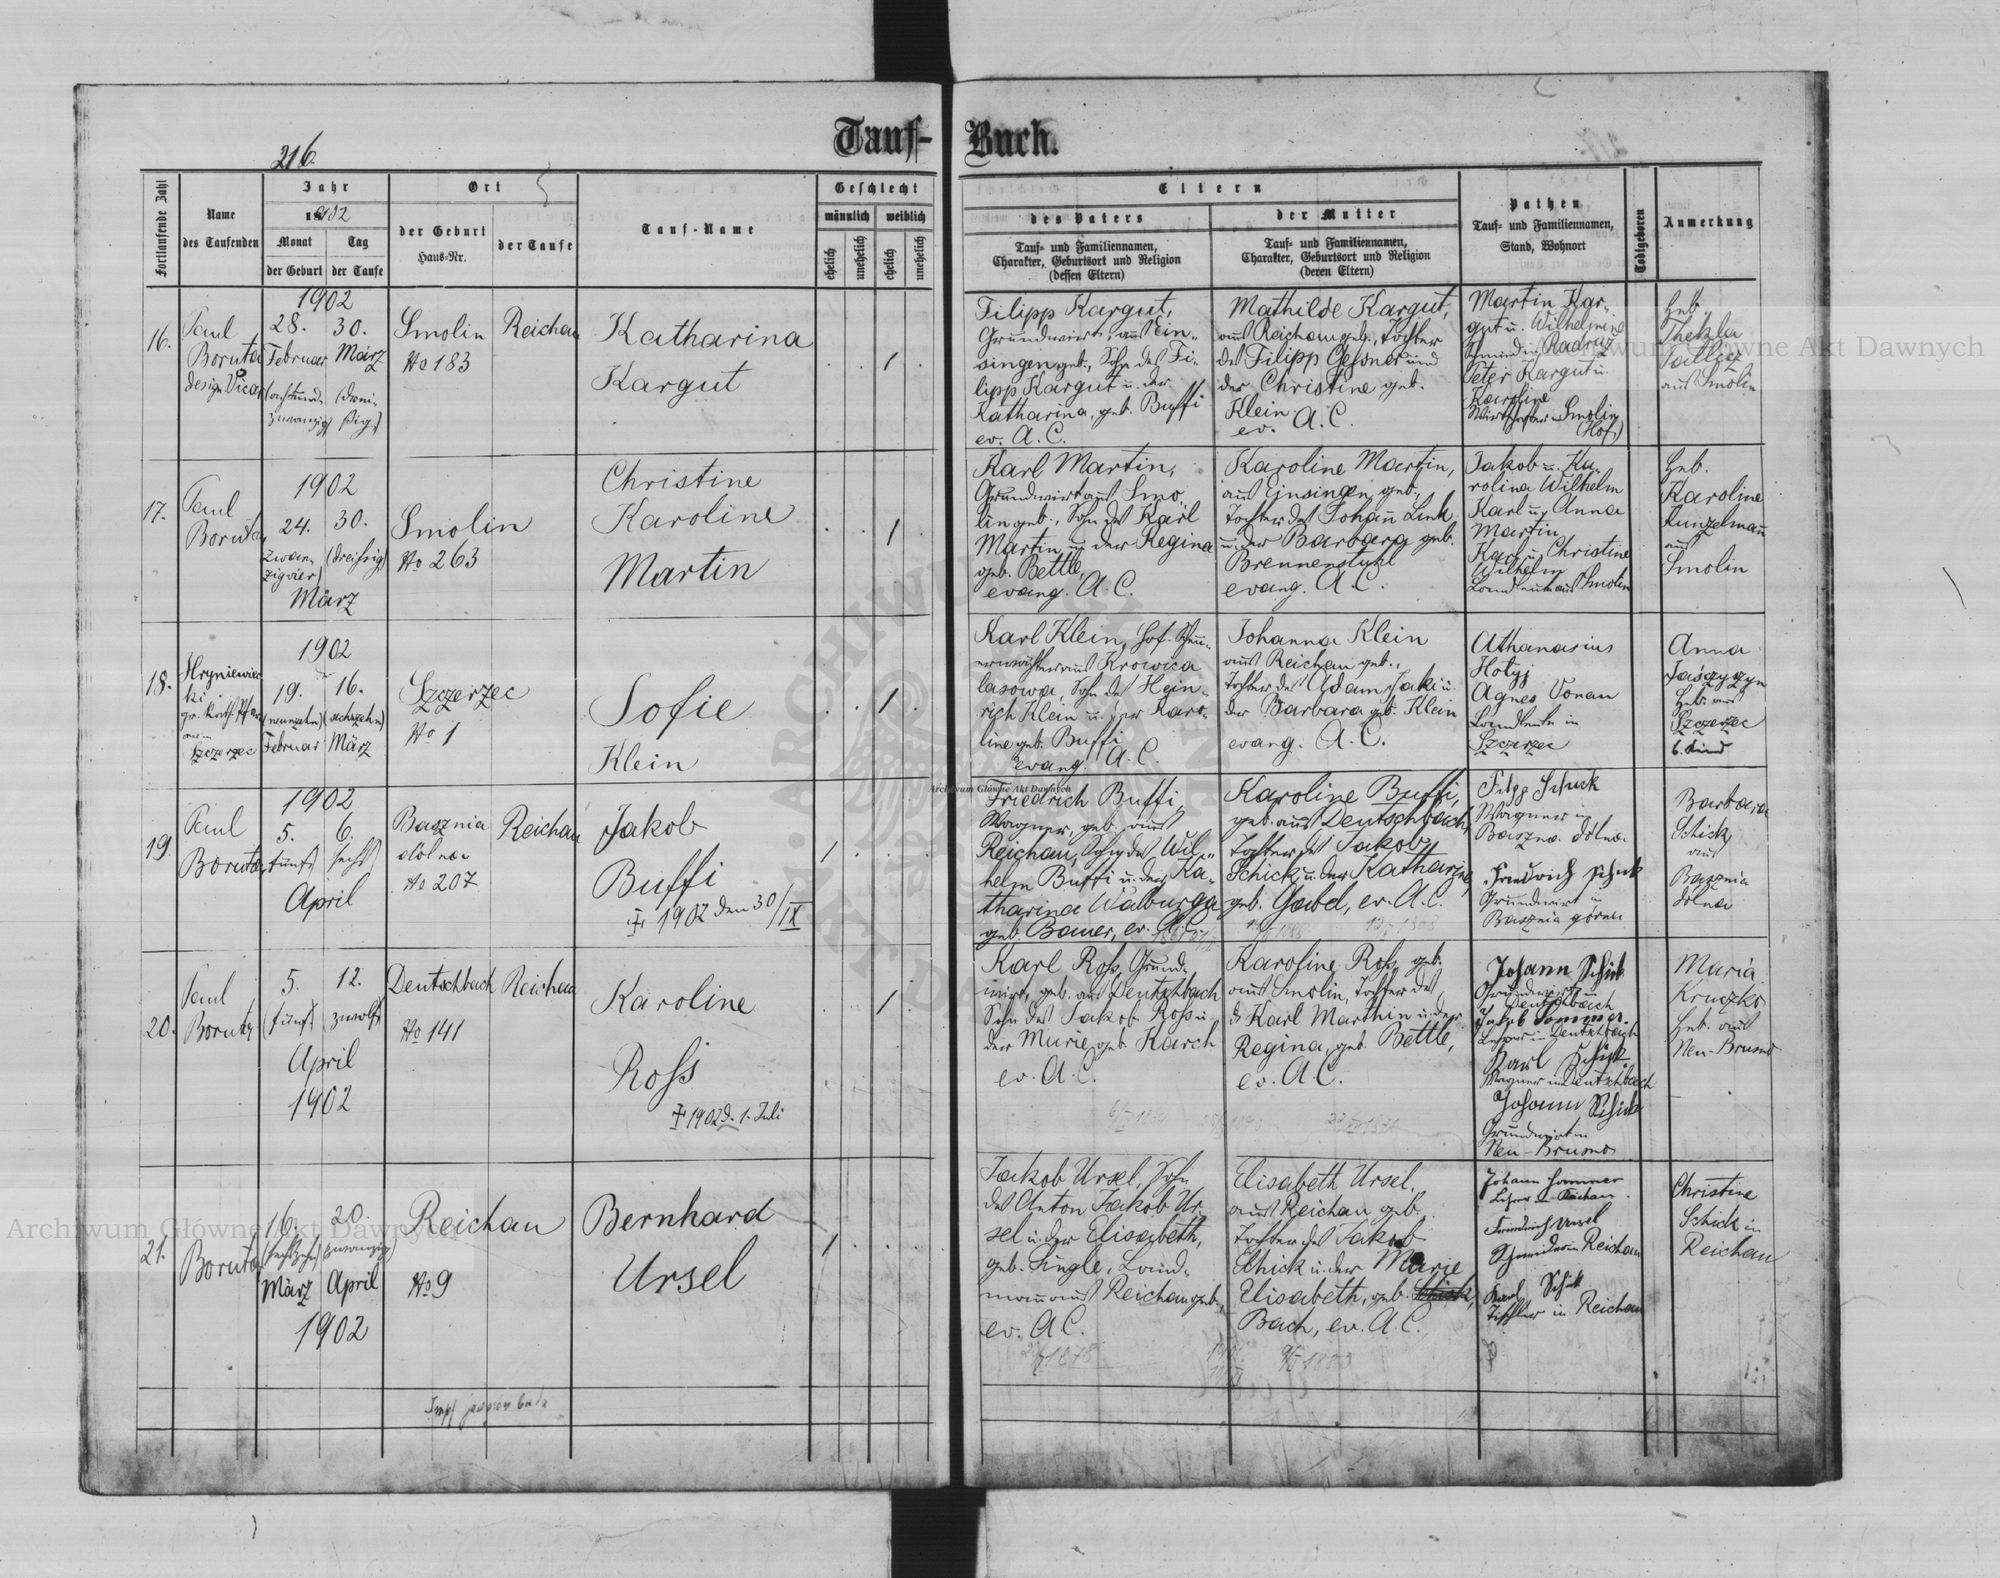 216.
Tauf-Buch.
Fortlaufende Zahl
Name
des Taufenden
Jahr
1902
Monat
der Geburt
Tag
der Taufe
Ort
der Geburt
Haus-Nr.
der Taufe
Tauf-Name
Geschlecht
männlich
weiblich
ehelich
unehelich
ehelich
unehelich
Eltern
des Vaters
Tauf- und Familiennamen,
Charakter, Geburtsort und Religion
(dessen Eltern)
der Mutter
Tauf- und Familiennamen,
Charakter, Geburtsort und Religion
(deren Eltern)
Pathen
Tauf- und Familiennamen,
Stand, Wohnort
Todtgeboren
Anmerkung
16.
Paul
Boruta
design. Vicar
1902
28.
Februar
(achtund-
zwanzig)
30.
März
(drei-
ßig)
Smolin
No 183
Reichau
Katharina
Kargut
1
Filipp Kargut,
Grundwirt, aus Ein-
singen geb., Sohn des Fi-
lipp Kargut u. der
Katharina, geb. Buffi
ev. A. C.
Mathilde Kargut,
aus Reichau geb., Tochter
des Filipp Gessner und
der Christine geb.
Klein
ev. A. C.
Martin Kar-
gut u. Wilhelmine
in Radruz
Peter Kargut u.
Karoline
Smolin
(Hof)
Heb.
Thekla
aus Smolin
17.
Paul
Boruta
1902
24.
(zwan-
zigvier)
30.
(dreissig)
März
Smolin
No 263
Christine
Karoline
Martin
1
Karl Martin,
Grundwirt aus Smo-
lin geb., Sohn des Karl
Martin u. der Regina
geb. Bettle,
evang. A. C.
Karoline Martin,
aus Einsingen geb.,
Tochter des Johann Link
u. der Barbara geb.
Brennenstuhl
evang. A. C.
Jakob u. Ka-
rolina Wilhelm
Karl u. Anna
Martin
Karl u. Christine
Wilhelm
Landleute aus Smolin
Heb.
Karoline
Kunzelmann
aus
Smolin
18.
Hryniewiec
ki
gr. kath. Pfar-
rer in
Szczerzec
1902
19.
(neunzehn)
Februar
16.
(sechszehn)
März
Szczerzec
No 1
Sofie
Klein
1
Karl Klein, Hof-
aus Krowica
lasowa, Sohn des Hein-
rich Klein u. der Karo-
line geb. Buffi
evang. A. C.
Johanna Klein
aus Reichau geb.,
Tochter des Adam Jaki u.
der Barbara geb. Klein
evang. A. C.
Athanasius
Hotyj
Agnes Vonau
Landleute in
Szczerzec
Anna
Heb. aus
Szczerzec
6. Kind
19.
Paul
Boruta
1902
5.
fünf
6.
sechs
April
Basznia
dolna
No 207
Reichau
Jakob
Buffi
1902 den 30/IX
1
Friedrich Buffi,
Wagner, geb. aus
Reichau, Sohn des Wil-
helm Buffi u. der Ka-
tharina Walburga
geb. Bauer, ev. A. C.
Karoline Buffi,
geb. aus Deutschbach,
Tochter des Jakob
Schick u. der Katharine,
geb. Gabel, ev. A. C.
Filipp Schick
Wagner in
Baszna dolna.
Friedrich Schick
Grundwirt in
Basznia górna
Barbara
Schick
aus
Basznia
dolna
20.
Paul
Boruta
5.
(fünf)
12.
zwölf
April
1902
Deutschbach
No 141
Reichau
Karoline
Ross
1902 d. 1. Juli
1
Karl Ross, Grund-
wirt, geb. aus Deutschbach
Sohn des Jakob Ross u.
der Marie geb. Karch
ev. A. C.
Karoline Ross, geb.
aus Smolin, Tochter des
Karl Marthin u. der
Regina, geb. Bettle,
ev. A. C.
Johann Schick
Grundwirt in
Deutschbach
Jakob Sommer
Lehrer in Deutschbach
Karl Schick
Wagner in Deutschbach
Johann Schick
Grundwirt in
Neu-Brusno
Maria
Kruczko
Heb. aus
Neu-Brusno
21.
Boruta
16.
(sechszehn)
März
20.
(zwanzig)
April
1902
Reichau
No 9
Bernhard
Ursel
1
Jakob Ursel, Sohn
des Anton Jakob Ur-
sel u. der Elisabeth,
geb. Lingle, Land-
mann aus Reichau geb.,
ev. A. C.
Elisabeth Ursel,
aus Reichau geb.,
Tochter des Jakob
Schick u. der Marie
Elisabeth, geb. Schick,
Bach, ev. A. C.
Johann Sommer
Lehrer in Reichau.
Friedrich Ursel
Schneider in Reichau
Karl Schick
Tischler in Reichau
Christine
Schick in
Reichau
Archiwum Główne Akt Dawnych
Archiwum Główne Akt Dawnych
Archiwum Główne Akt Dawnych